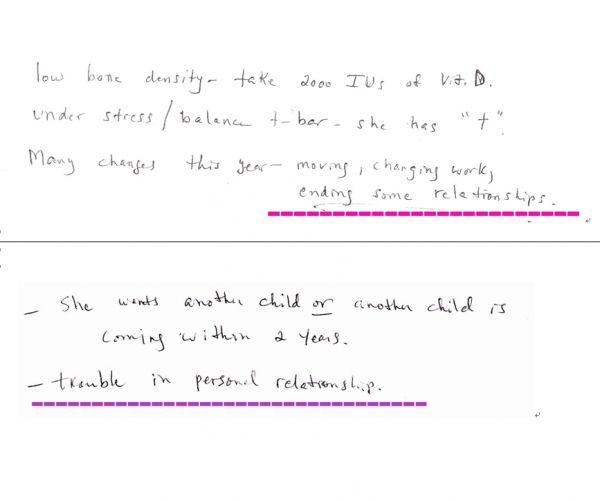 low bone density - take 2000 IUs of Vit. D.
under stress/balance t-bar - she has "t".
Many changes this year - moving, changing work,
ending some relationships.
- She wants another child or another child is
coming within 2 years.
- trouble in personal relationship.